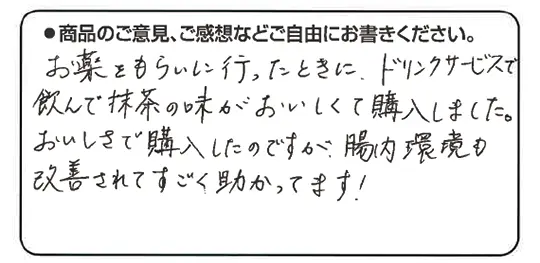 ●商品のご意見、ご感想などご自由にお書きください。
お薬をもらいに行ったときに、ドリンクサービスで
飲んで抹茶の味がおいしくて購入しました。
おいしさで購入したのですが、腸内環境も
改善されてすごく助かってます!